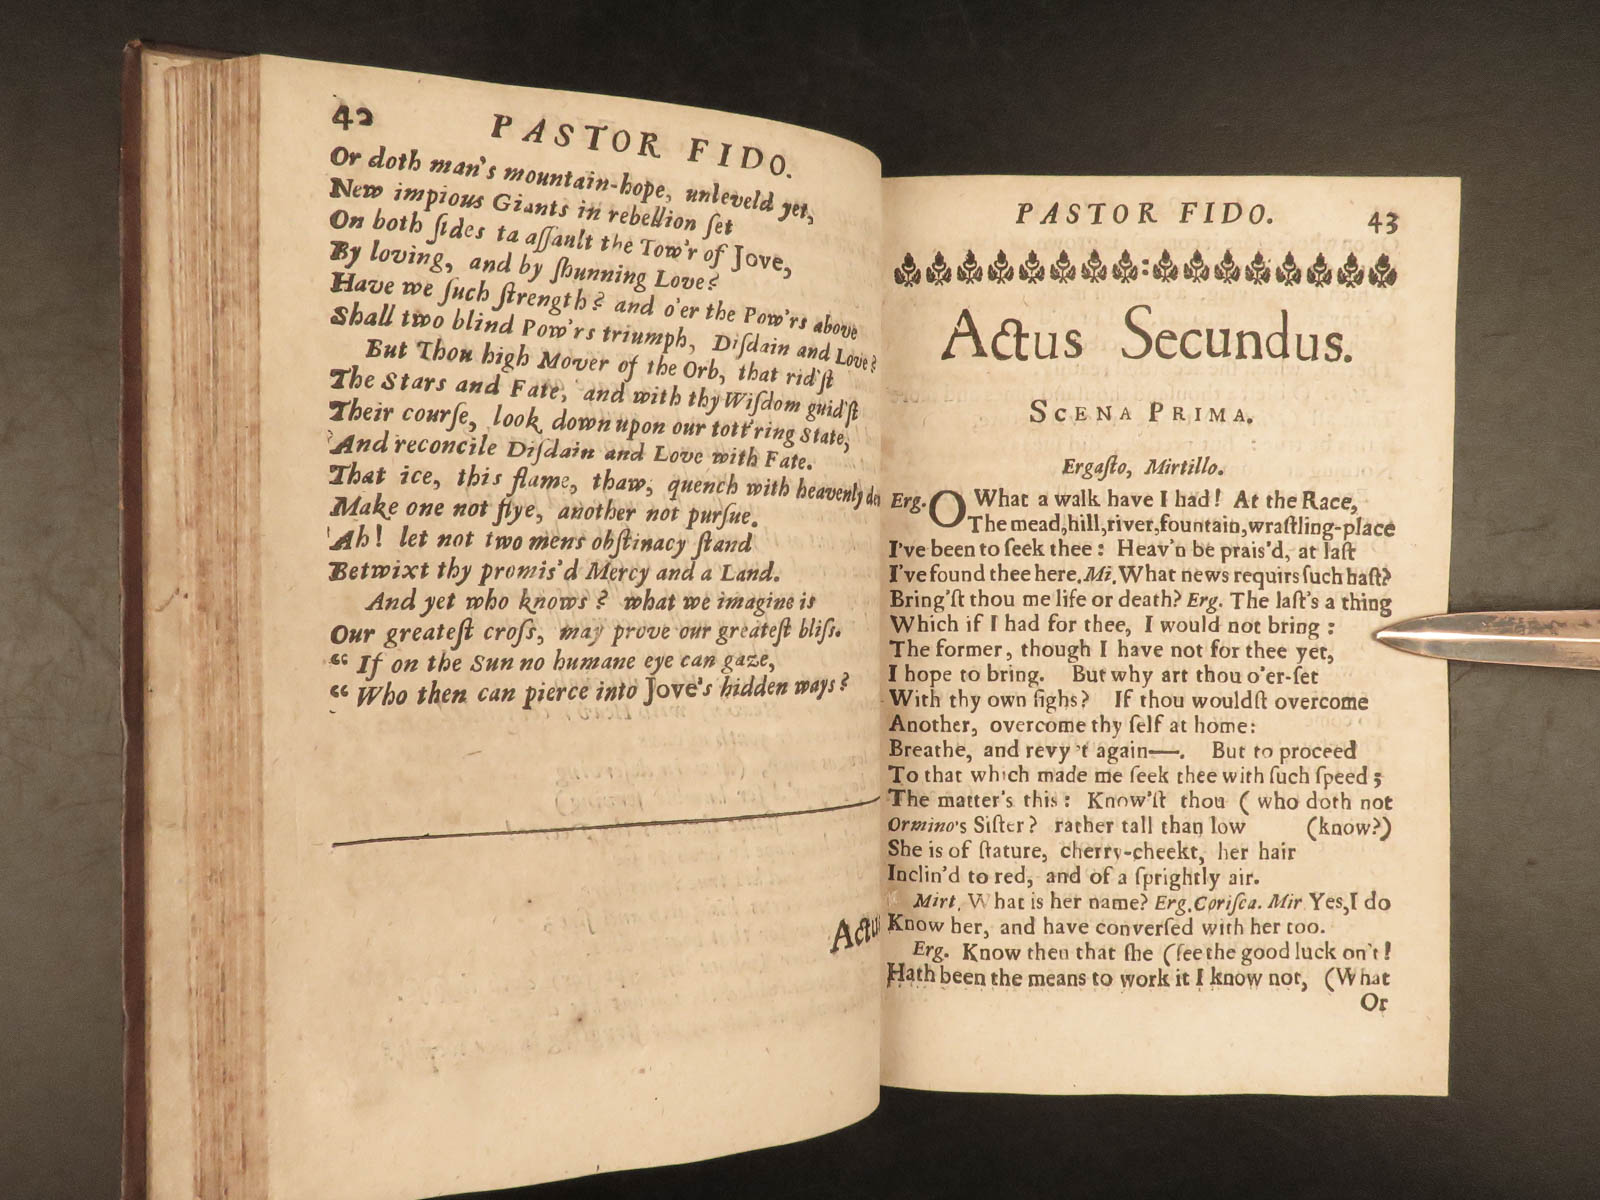 42
PASTOR FIDO.
Or doth man's mountain-hope, unleveld yet,
New impious Giants in rebellion ſet
On both ſides ta aſſault the Tow'r of Jove,
By loving, and by ſhunning Love?
Have we ſuch ſtrength? and o'er the Pow'rs above
Shall two blind Pow'rs triumph, Diſdain and Love?
But Thou high Mover of the Orb, that rid'ſt
The Stars and Fate, and with thy Wiſdom guid'ſt
Their courſe, look down upon our tott'ring State,
And reconcile Diſdain and Love with Fate.
That ice, this flame, thaw, quench with heavenly
Make one not flye, another not purſue.
Ah! let not two mens obſtinacy ſtand
Betwixt thy promis'd Mercy and a Land.
And yet who knows? what we imagine is
Our greateſt croſs, may prove our greateſt bliſs.
“ If on the Sun no humane eye can gaze,
“ Who then can pierce into Jove's hidden ways?
PASTOR FIDO. 43
Actus Secundus.
SCENA PRIMA.
Ergaſto, Mirtillo.
Erg. O What a walk have I had! At the Race,
The mead,hill,river,fountain,wraſtling-place
I've been to ſeek thee: Heav'n be prais'd, at laſt
I've found thee here. Mi. What news requirs ſuch haſt?
Bring'ſt thou me life or death? Erg. The laſt's a thing
Which if I had for thee, I would not bring:
The former, though I have not for thee yet,
I hope to bring. But why art thou o'er-ſet
With thy own ſighs? If thou wouldſt overcome
Another, overcome thy ſelf at home:
Breathe, and revy't again—. But to proceed
To that which made me ſeek thee with ſuch ſpeed;
The matter's this: Know'ſt thou ( who doth not
Ormino's Siſter? rather tall than low (know?)
She is of ſtature, cherry-cheekt, her hair
Inclin'd to red, and of a ſprightly air.
Mirt. What is her name? Erg. Coriſca. Mir Yes,I do
Know her, and have converſed with her too.
Erg. Know then that ſhe (ſee the good luck on't!
Hath been the means to work it I know not, (What
Or